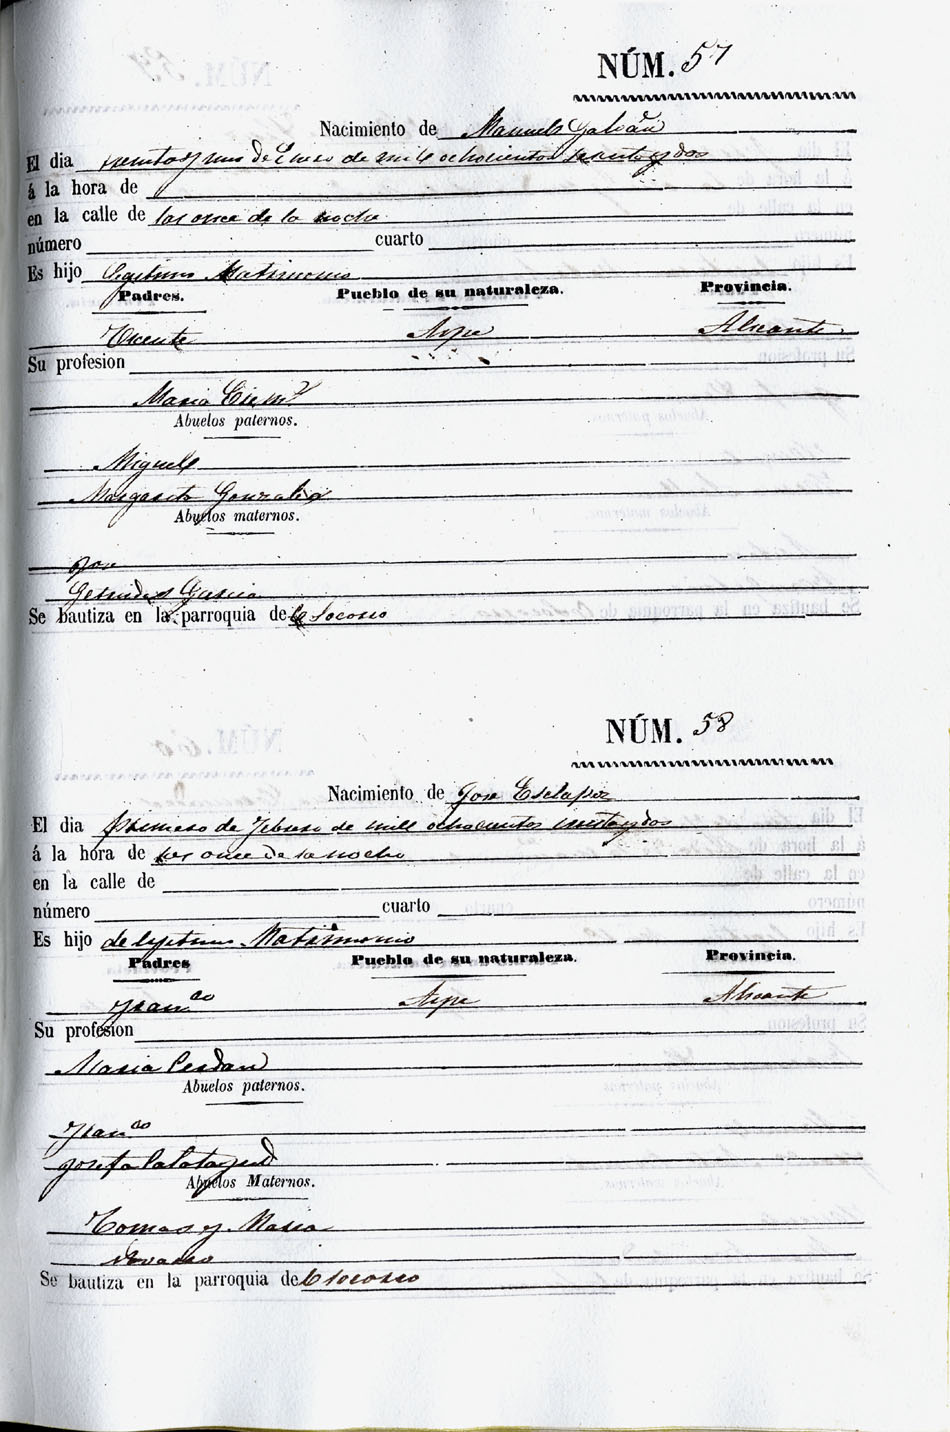 NÚM. 57
Nacimiento de Manuel Galvañ
El dia treinta y uno de Enero de mile ochocientos setenta y dos
á la hora de
en la calle de las once de la noche
número cuarto
Es hijo legitimo Matrimonio
Padres. Pueblo de su naturaleza. Provincia.
Vicente Aspe Alicante
Su profesion
Maria
Abuelos paternos.
Miguel
Margarita Gonzalez
Abuelos maternos.
Jose
Gertrudes Garcia
Se bautiza en la parroquia de el Socorro
NÚM. 58
Nacimiento de Jose Esclapez
El dia primero de Febrero de mill ochocientos setenta y dos
á la hora de las once de la noche
en la calle de
número cuarto
Es hijo de lejitimo Matrimonio
Padres Pueblo de su naturaleza. Provincia.
Fran.co Aspe Alicante
Su profesion
Maria Cerdan
Abuelos paternos.
Fran.co
Josefa Calatayud
Abuelos Maternos.
Tomas y Maria
Navarro
Se bautiza en la parroquia de el Socorro